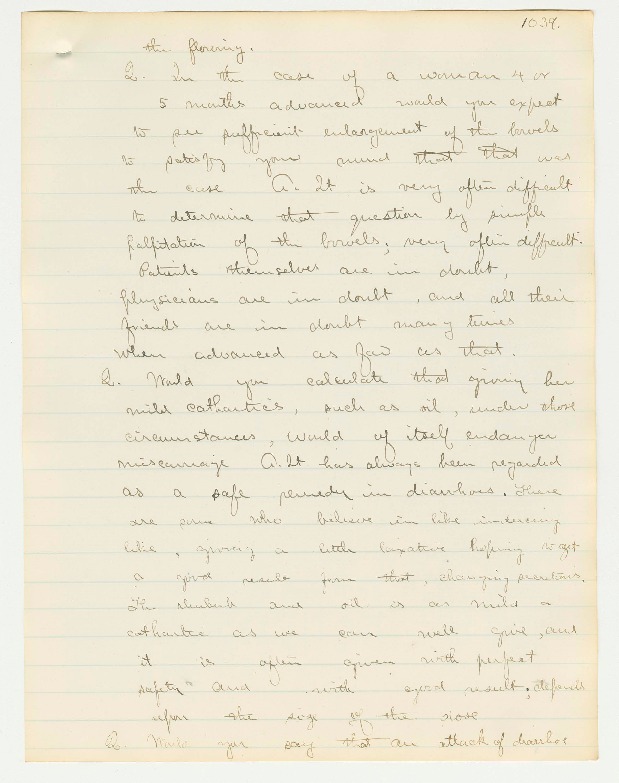 1039.
the flowing.
Q. In the case of a woman 4 or
5 months advanced would you expect
to see sufficient enlargement of the bowels
to satisfy your mind that that was
the case A. It is very often difficult
to determine that question by simple
palpitation of the bowels; very often difficult.
Patients themselves are in doubt,
physicians are in doubt, and all their
friends are in doubt many times
when advanced as far as that.
Q. Would you calculate that giving her
mild cathartics, such as oil, under those
circumstances, would of itself endanger
miscarriage A. It has always been regarded
as a safe remedy in diarrhoea. There
are some who believe in like
like, giving a little laxative hoping to get
a good result from that, changing secretions.
The rhubarb and oil is as mild a
cathartic as we can well give, and
it is often given with perfect
safety and with good result; depends
upon the size of the dose
Q. Would you say that an attack of diarrhoe